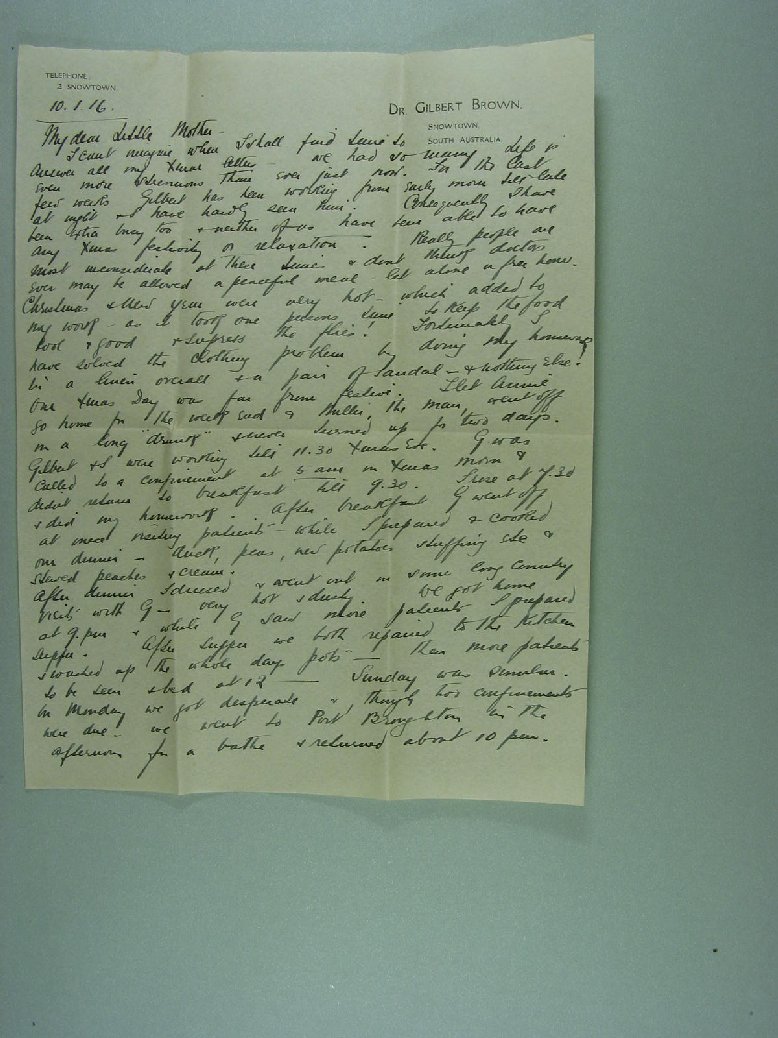 TELEPHONE.
3 SNOWTOWN.
DR. GILBERT BROWN.
SNOWTOWN,
SOUTH AUSTRALIA
10.1.16.
My dear Little Mother -
I can't imagine when I shall find time to
answer all my Xmas letters - we had so many. Life is
even more strenuous than ever just now. For the last
few weeks Gilbert has been working from early morn till late
at night & I have hardly seen him. Consequently I have
been extra busy too & neither of us have been able to have
any Xmas festivity or relaxation. Really people are
most inconsiderate at these times & don't think doctors
ever may be allowed a peaceful meal let alone a free hour.
Christmas & New Year were very hot - which added to
my work - as it took one persons time to keep the food
cool & good & supress the flies! Fortunately I
have solved the clothing problem by doing my housework
in a linen overall & a pair of sandals - & nothing else.
Our Xmas Day was far from festive. I let Annie
go home for the week end & Miller, the man, went off
on a long "drunk" & never turned up for two days.
Gilbert & I were working till 11.30 Xmas Eve. G was
called to a confinement at 5 am on Xmas morn &
didnt return to breakfast till 9.30. I rose at 7.30
& did my housework. After breakfast G went off
at once visiting patients - while I prepared & cooked
our dinner - duck, peas, new potatoes stuffing etc &
stewed peaches & cream.
After dinner I dressed & went out on some long country
visits with G - very hot & dusty. We got home
at 9. pm & while G saw more patients I prepared
supper. After supper we both repaired to the kitchen
& washed up the whole days pots - then more patients
to be seen & bed at 12 - Sunday was similar.
On Monday we got desperate &, though two confinements
were due - we went to Port Broughton in the
afternoon for a bathe & returned about 10 pm.